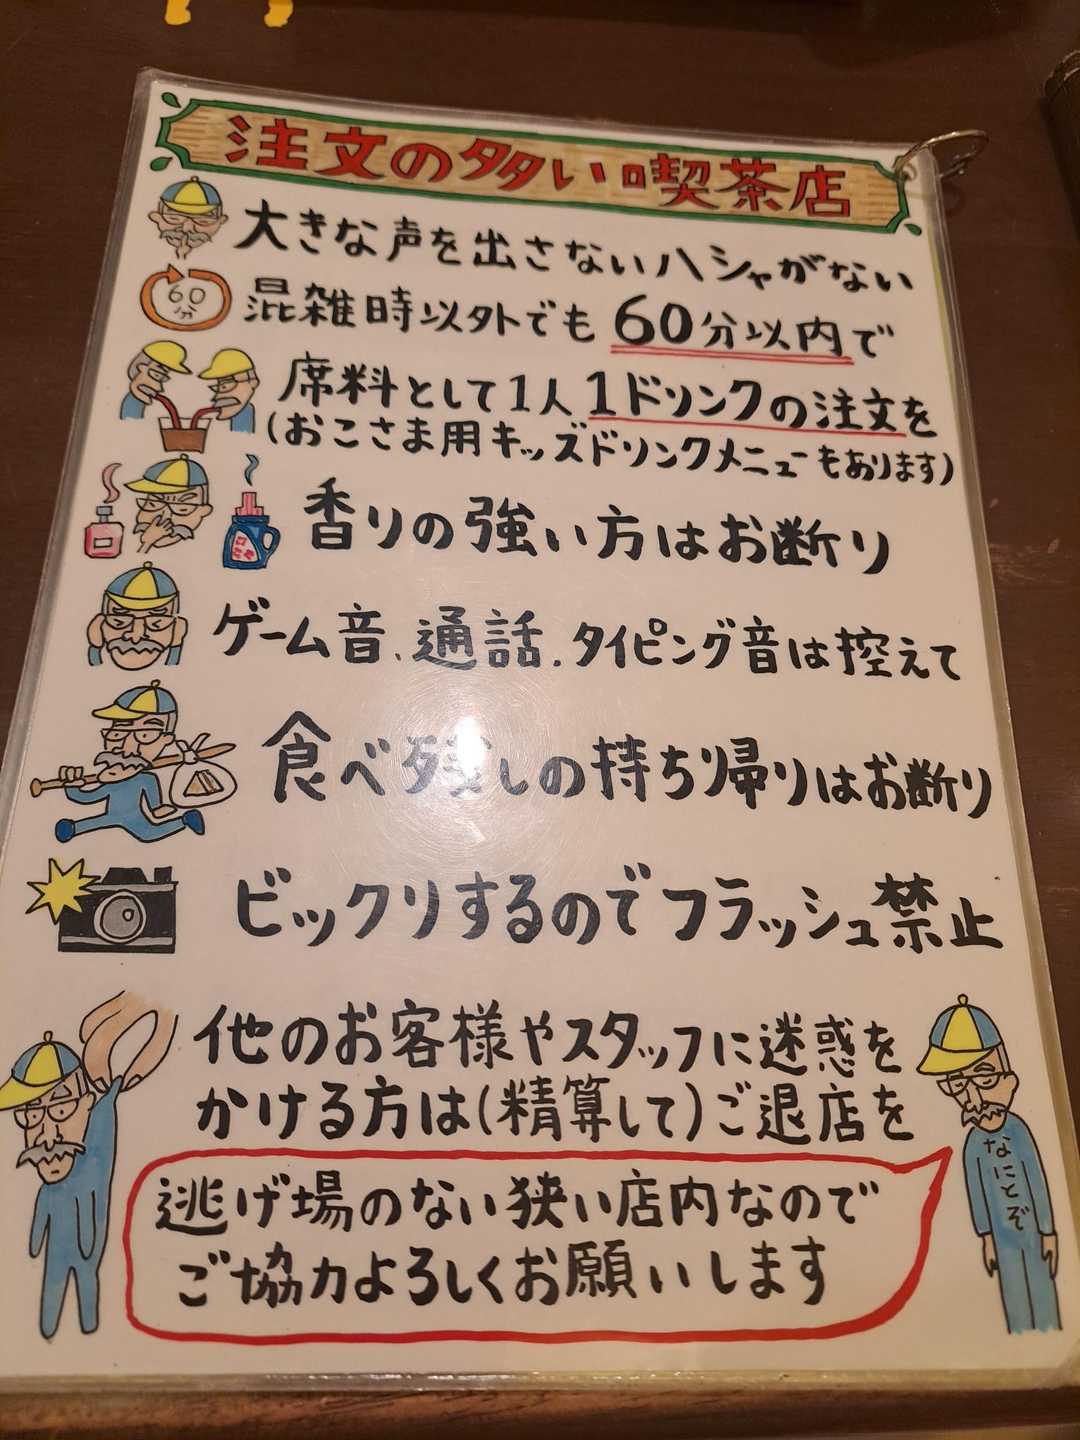 注文の多い喫茶店
大きな声を出さないハシャがない
60分
混雑時以外でも60分以内で
席料として1人1ドリンクの注文を
(おこさま用キッズドリンクメニューもあります)
香りの強い方はお断り
ゲーム音、通話、タイピング音は控えて
食べ残しの持ち帰りはお断り
ビックリするのでフラッシュ禁止
他のお客様やスタッフに迷惑を
かける方は(精算して)ご退店を
なにとぞ
逃げ場のない狭い店内なので
ご協力よろしくお願いします